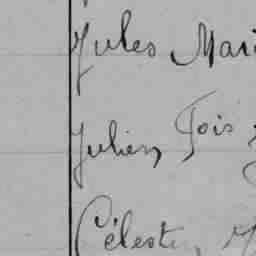 Jules Mari
Julien, Fois
Célestin, M